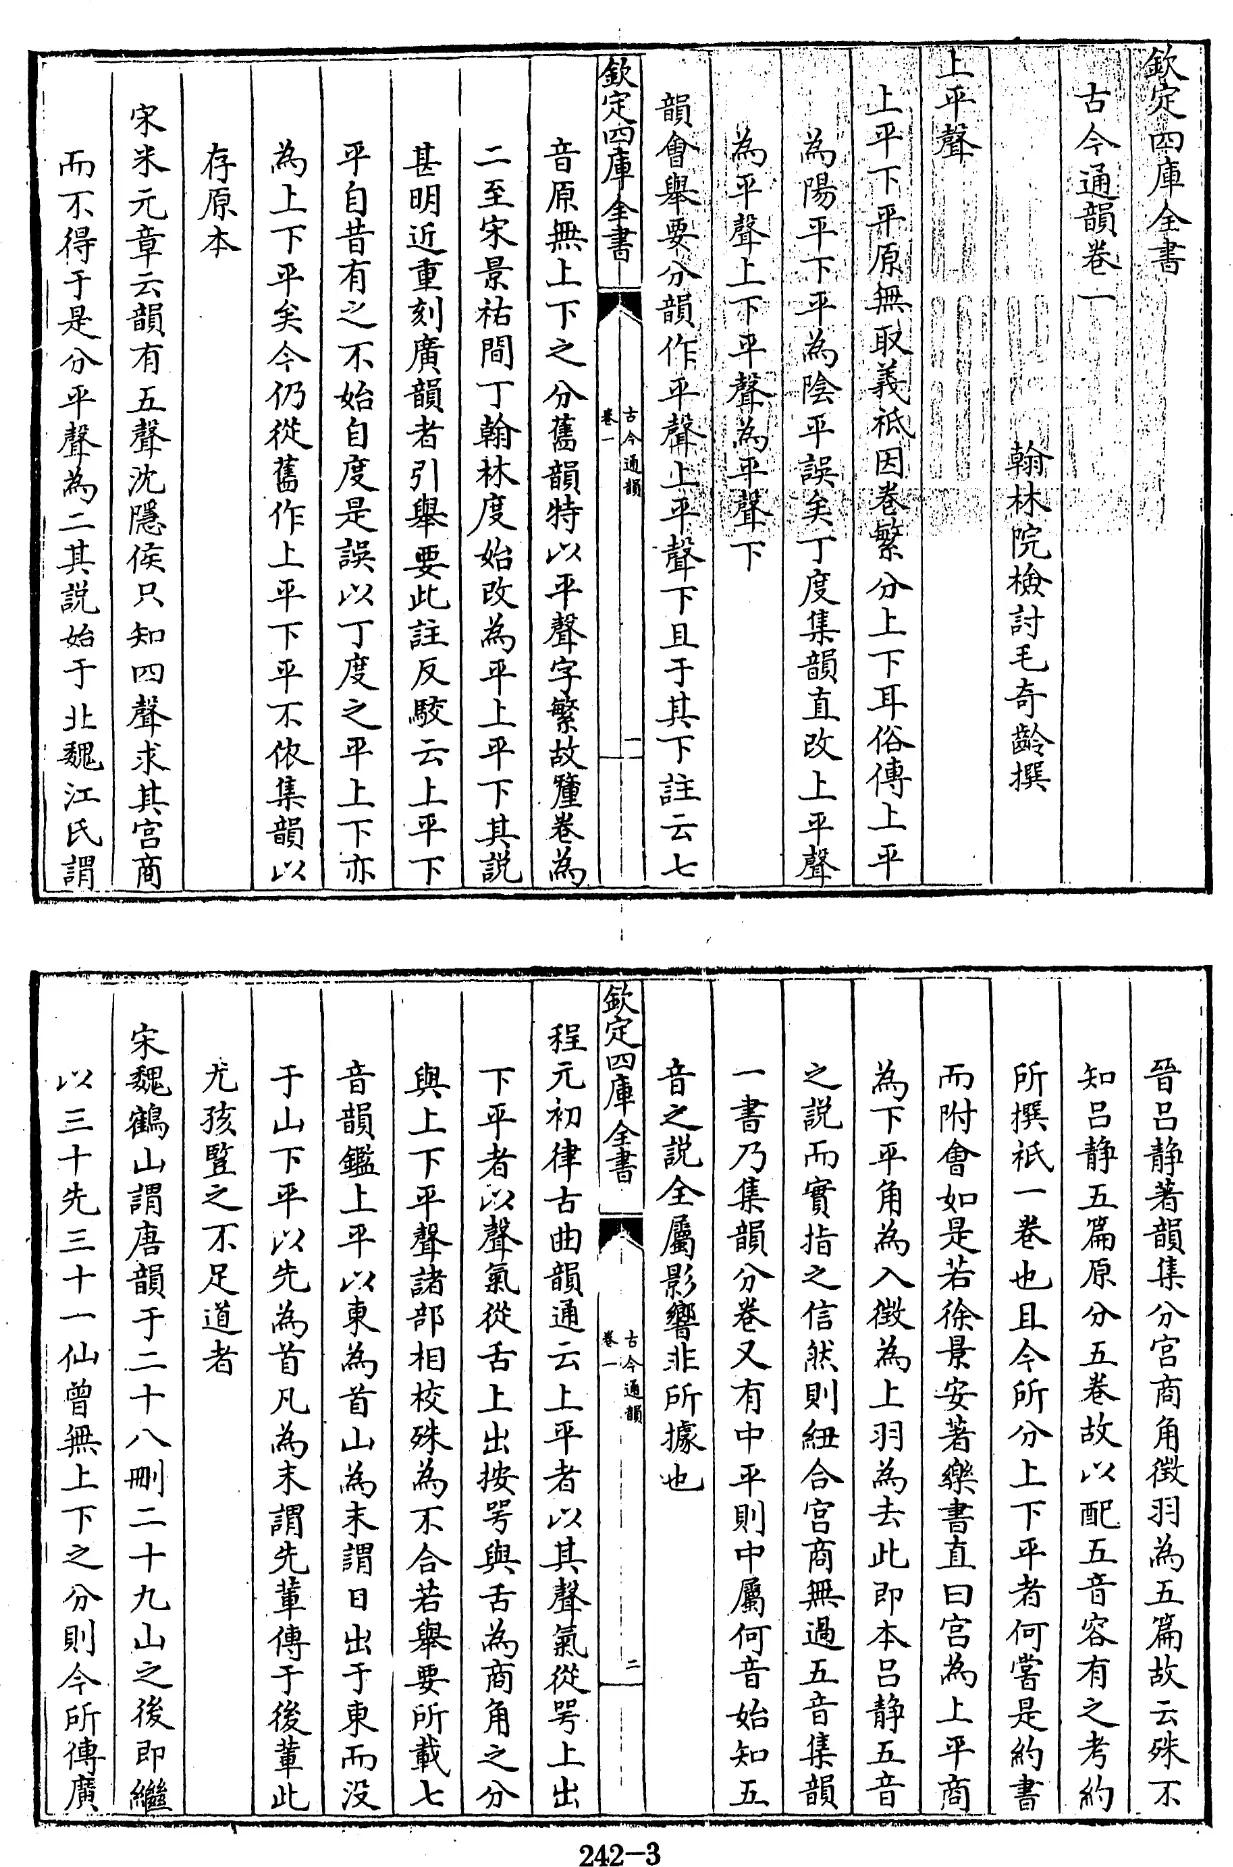 欽定四庫全書
古今通韻卷一
翰林院檢討毛奇齡撰
上平聲
上平下平原無取義祗因卷繁分上下耳俗傳上平
為陽平下平為陰平誤矣丁度集韻直改上平聲
為平聲上下平聲為平聲下
韻會舉要分韻作平聲上平聲下且于其下註云七
欽定四庫全書
古今通韻
卷一
一
音原無上下之分舊韻特以平聲字繁故釐卷為
二至宋景祐間丁翰林度始改為平上平下其説
甚明近重刻廣韻者引舉要此註反駮云上平下
平自昔有之不始自度是誤以丁度之平上下亦
為上下平矣今仍從舊作上平下平不依集韻以
存原本
宋米元章云韻有五聲沈隱侯只知四聲求其宫商
而不得于是分平聲為二其説始于北魏江氏謂
晉吕静著韻集分宫商角徵羽為五篇故云殊不
知吕静五篇原分五卷故以配五音容有之考約
所撰祗一卷也且今所分上下平者何嘗是約書
而附會如是若徐景安著樂書直曰宫為上平商
為下平角為入徵為上羽為去此即本吕静五音
之説而實指之信然則紐合宫商無過五音集韻
一書乃集韻分卷又有中平則中屬何音始知五
音之説全屬影響非所據也
欽定四庫全書
古今通韻
卷一
二
程元初律古曲韻通云上平者以其聲氣從咢上出
下平者以聲氣從舌上出按咢與舌為商角之分
與上下平聲諸部相校殊為不合若舉要所載七
音韻鑑上平以東為首山為末謂日出于東而没
于山下平以先為首凡為末謂先輩傳于後輩此
尤孩竪之不足道者
宋魏鶴山謂唐韻于二十八刪二十九山之後即繼
以三十先三十一仙曾無上下之分則今所傳廣
242-3